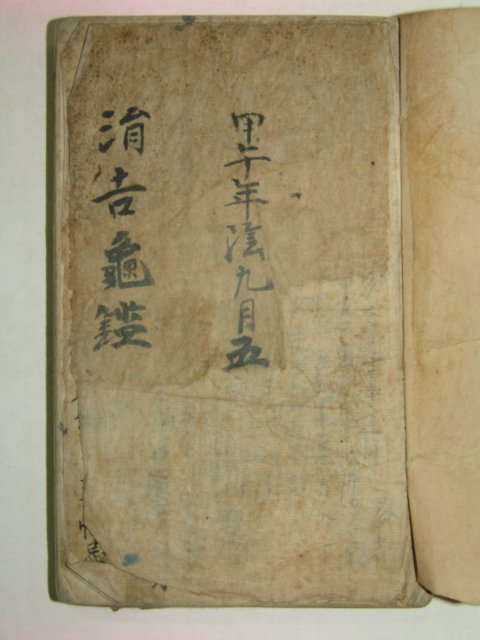 甲午年陰九月五
涓吉龜鑑